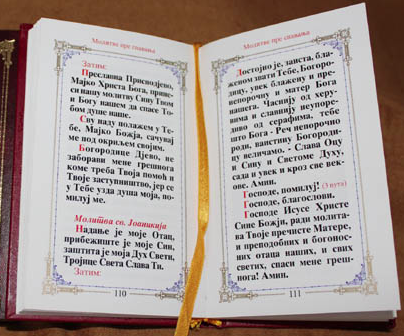 Молитве пре спавања
Затим:
Преславна Приснодјево,
Мајко Христа Бога, прине-
си нашу молитву Сину Твом
и Богу нашем да спасе То-
бом душе наше.
Сву наду полажем у Те-
бе, Мајко Божја, сачувај
ме под окриљем својим.
Богородице Дјево, не
заборави мене грешнога
коме треба Твоја помоћ и
Твоје заступништво, јер се
у Тебе узда душа моја, по-
милуј ме.
Молитва св. Јоаникија
Надање је моје Отац,
прибежиште је моје Син,
заштита је моја Дух Свети,
Тројице Света Слава Ти.
Затим:
110
Молитве пре спавања
Достојно је, заиста, бла-
женом звати Тебе, Богоро-
дицу, увек блажену и пре-
непорочну и матер Бога
нашега. Часнију од херу-
вима и славнију неупоре-
диво од серафима, тебе
што Бога - Реч непорочно
роди, ваистину Богороди-
цу величамо. - Слава Оцу
и Сину и Светоме Духу,
сада и увек и кроз све веко-
ве. Амин.
Господе, помилуј! (3 пута)
Господе, благослови.
Господе Исусе Христе
Сине Божји, ради молита-
ва Твоје пречисте Матере,
и преподобних и богонос-
них отаца наших, и свих
светих, спаси мене греш-
нога! Амин.
111